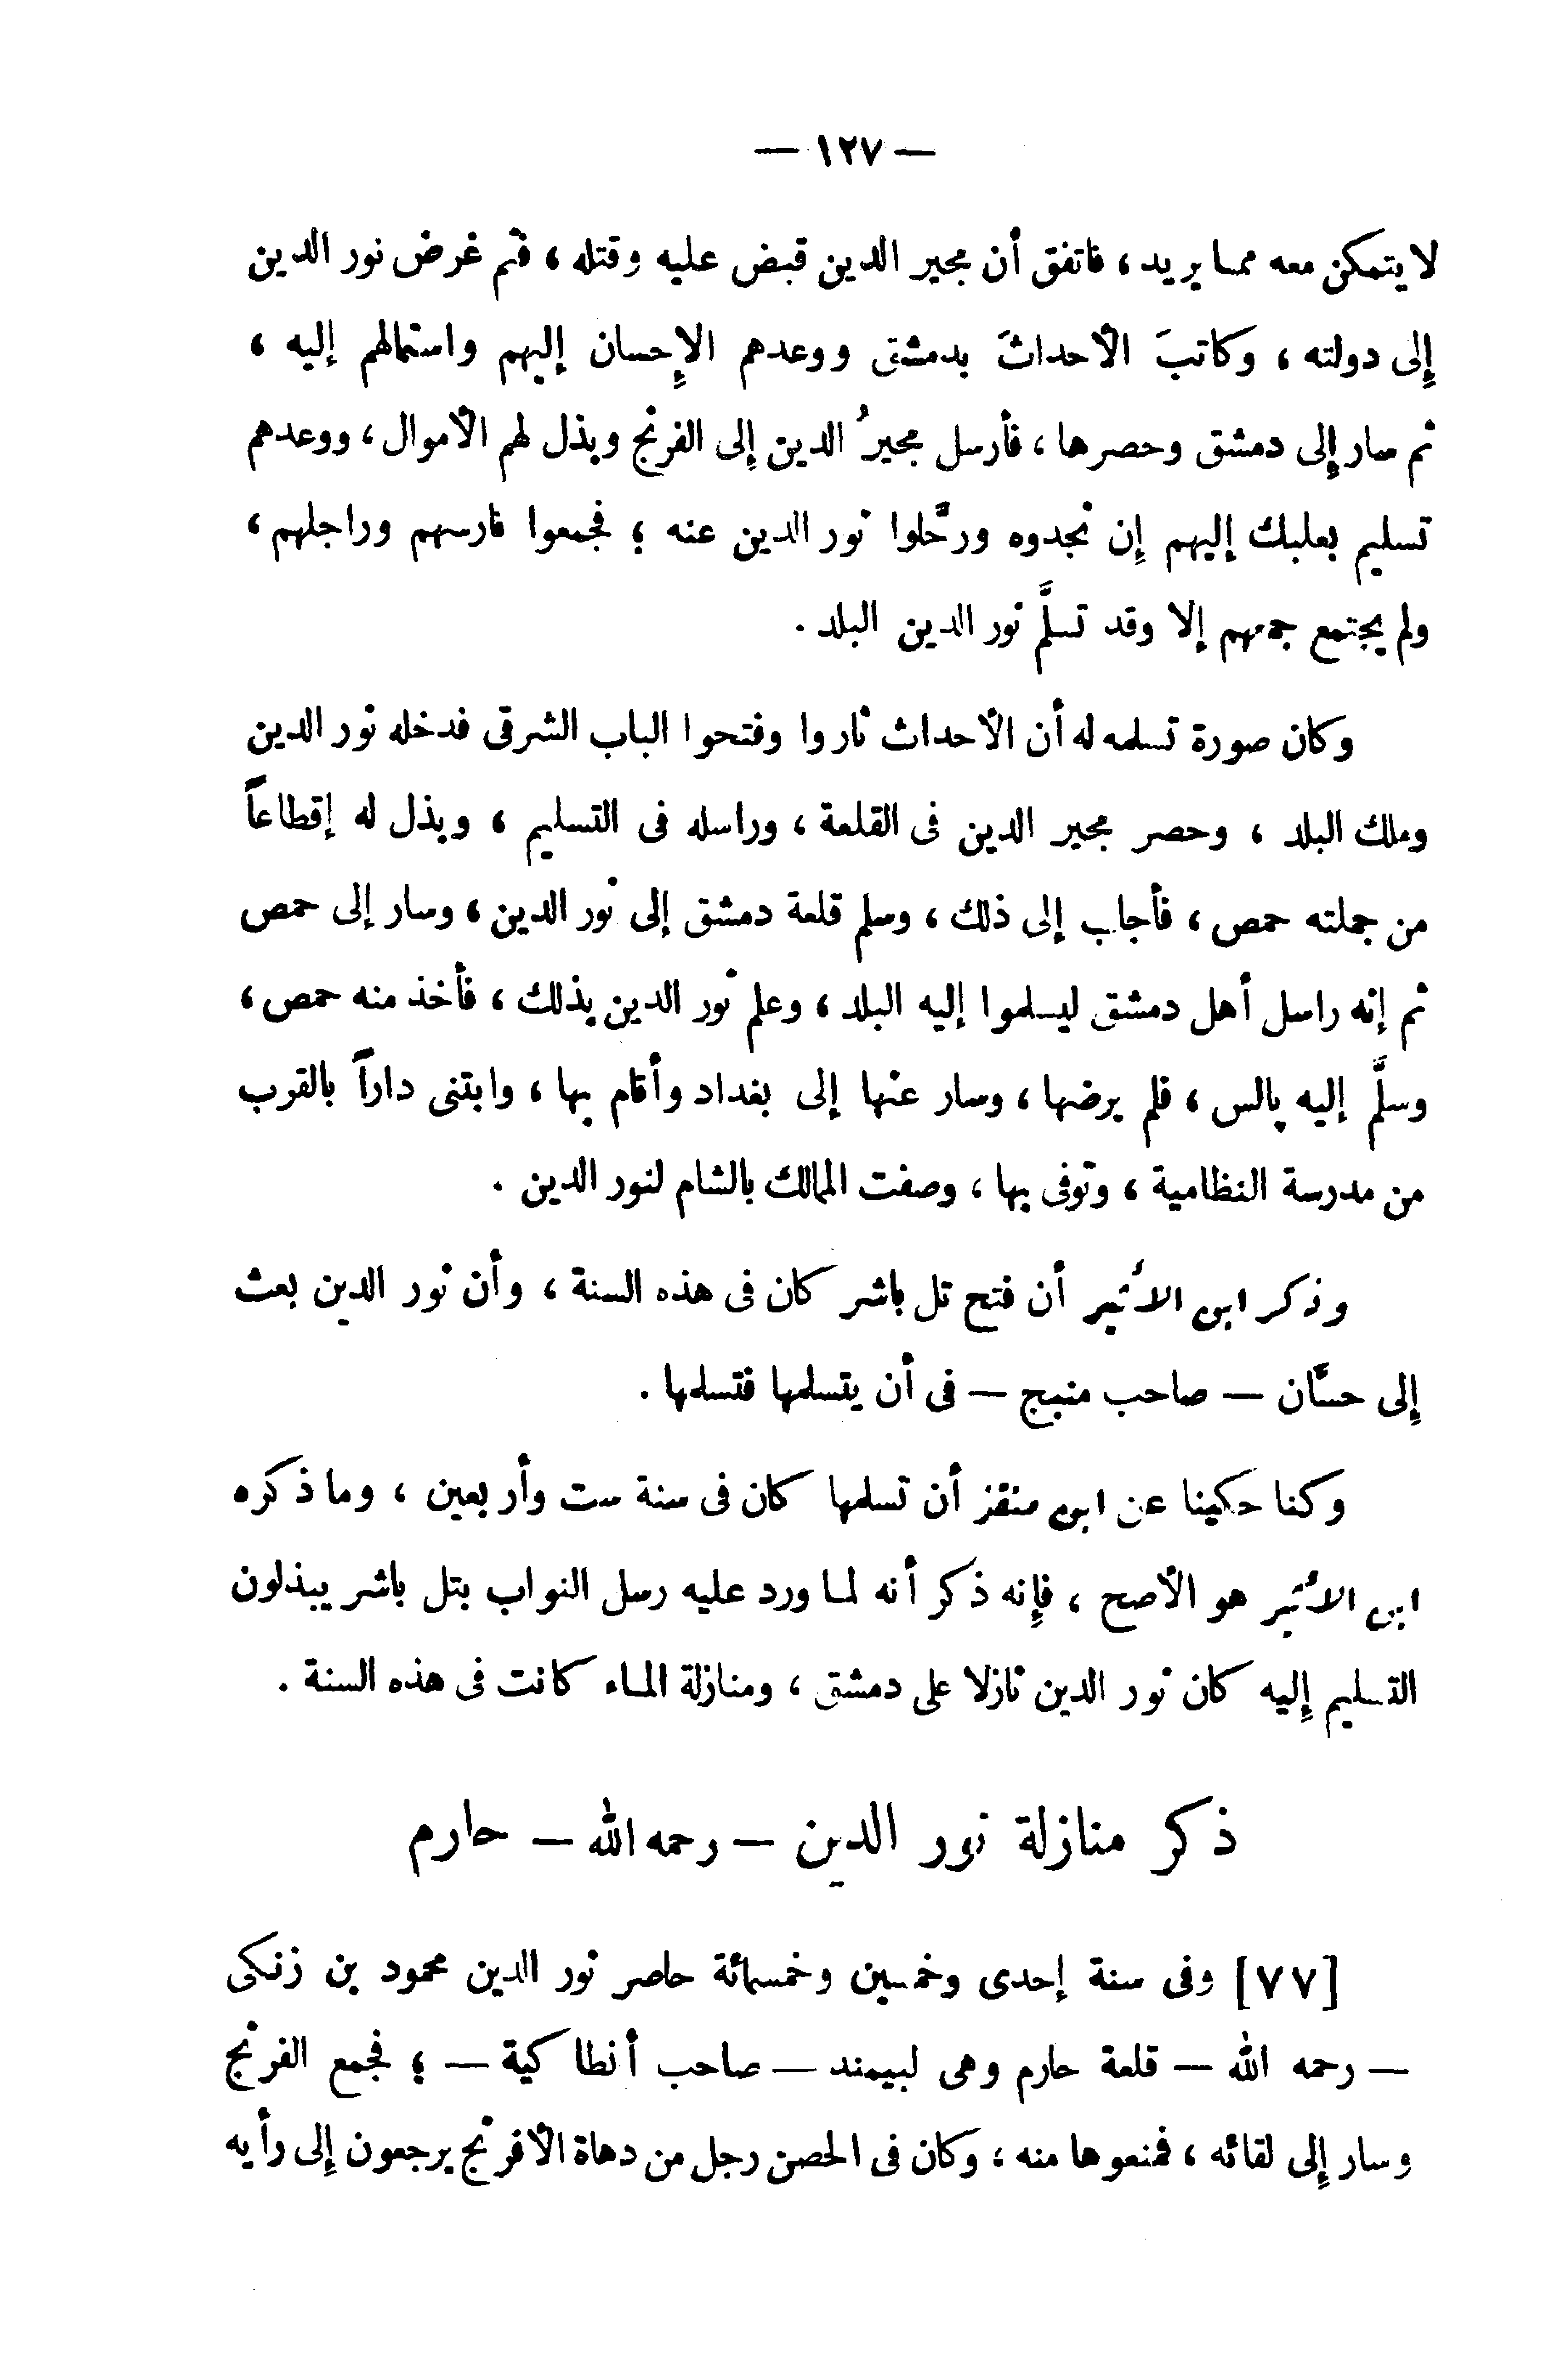 — ١٢٧ —
لا يتمكن معه مما يريد ، فاتفق أن مجير الدين قبض عليه وقتله ، فتم غرض نور الدين
إلى دولته ، وكاتبَ الأحداثَ بدمشق ووعدهم الإحسان إليهم واستمالهم إليه ،
ثم سار إلى دمشق وحصرها ، فأرسل مجيرُ الدين إلى الفرنج وبذل لهم الأموال ، ووعدهم
تسليم بعلبك إليهم إن نجدوه ورحَّلوا نور الدين عنه ؛ فجمعوا فارسهم وراجلهم ،
ولم يجتمع جمعهم إلا وقد تسلَّم نور الدين البلد .
وكان صورة تسلمه له أن الأحداث ثاروا وفتحوا الباب الشرقى فدخله نور الدين
وملك البلد ، وحصر مجير الدين فى القلعة ، وراسله فى التسليم ، وبذل له إقطاعاً
من جملته حمص ، فأجاب إلى ذلك ، وسلم قلعة دمشق إلى نور الدين ، وسار إلى حمص
ثم إنه راسل أهل دمشق ليسلموا إليه البلد ، وعلم نور الدين بذلك ، فأخذ منه حمص ،
وسلَّم إليه بالس ، فلم يرضها ، وسار عنها إلى بغداد وأقام بها ، وابتنى داراً بالقرب
من مدرسة النظامية ، وتوفى بها ، وصفت الممالك بالشام لنور الدين .
وذكر ابن الأثير أن فتح تل باشر كان فى هذه السنة ، وأن نور الدين بعث
إلى حسَّان — صاحب منبج — فى أن يتسلمها فتسلمها .
وكنا حكينا عن ابن منقذ أن تسلمها كان فى سنة ست وأربعين ، وما ذكره
ابن الأثير هو الأصح ، فإنه ذكر أنه لما ورد عليه رسل النواب بتل باشر يبذلون
التسليم إليه كان نور الدين نازلا على دمشق ، ومنازلة الماء كانت فى هذه السنة .
ذكر منازلة نور الدين — رحمه الله — حارم
[٧٧] وفى سنة إحدى وخمسين وخمسمائة حاصر نور الدين محمود بن زنكى
— رحمه الله — قلعة حارم وهى لبيمند — صاحب أنطاكية — ؛ فجمع الفرنج
وسار إلى لقائه ، فمنعوها منه ؛ وكان فى الحصن رجل من دهاة الأفرنج يرجعون إلى رأيه